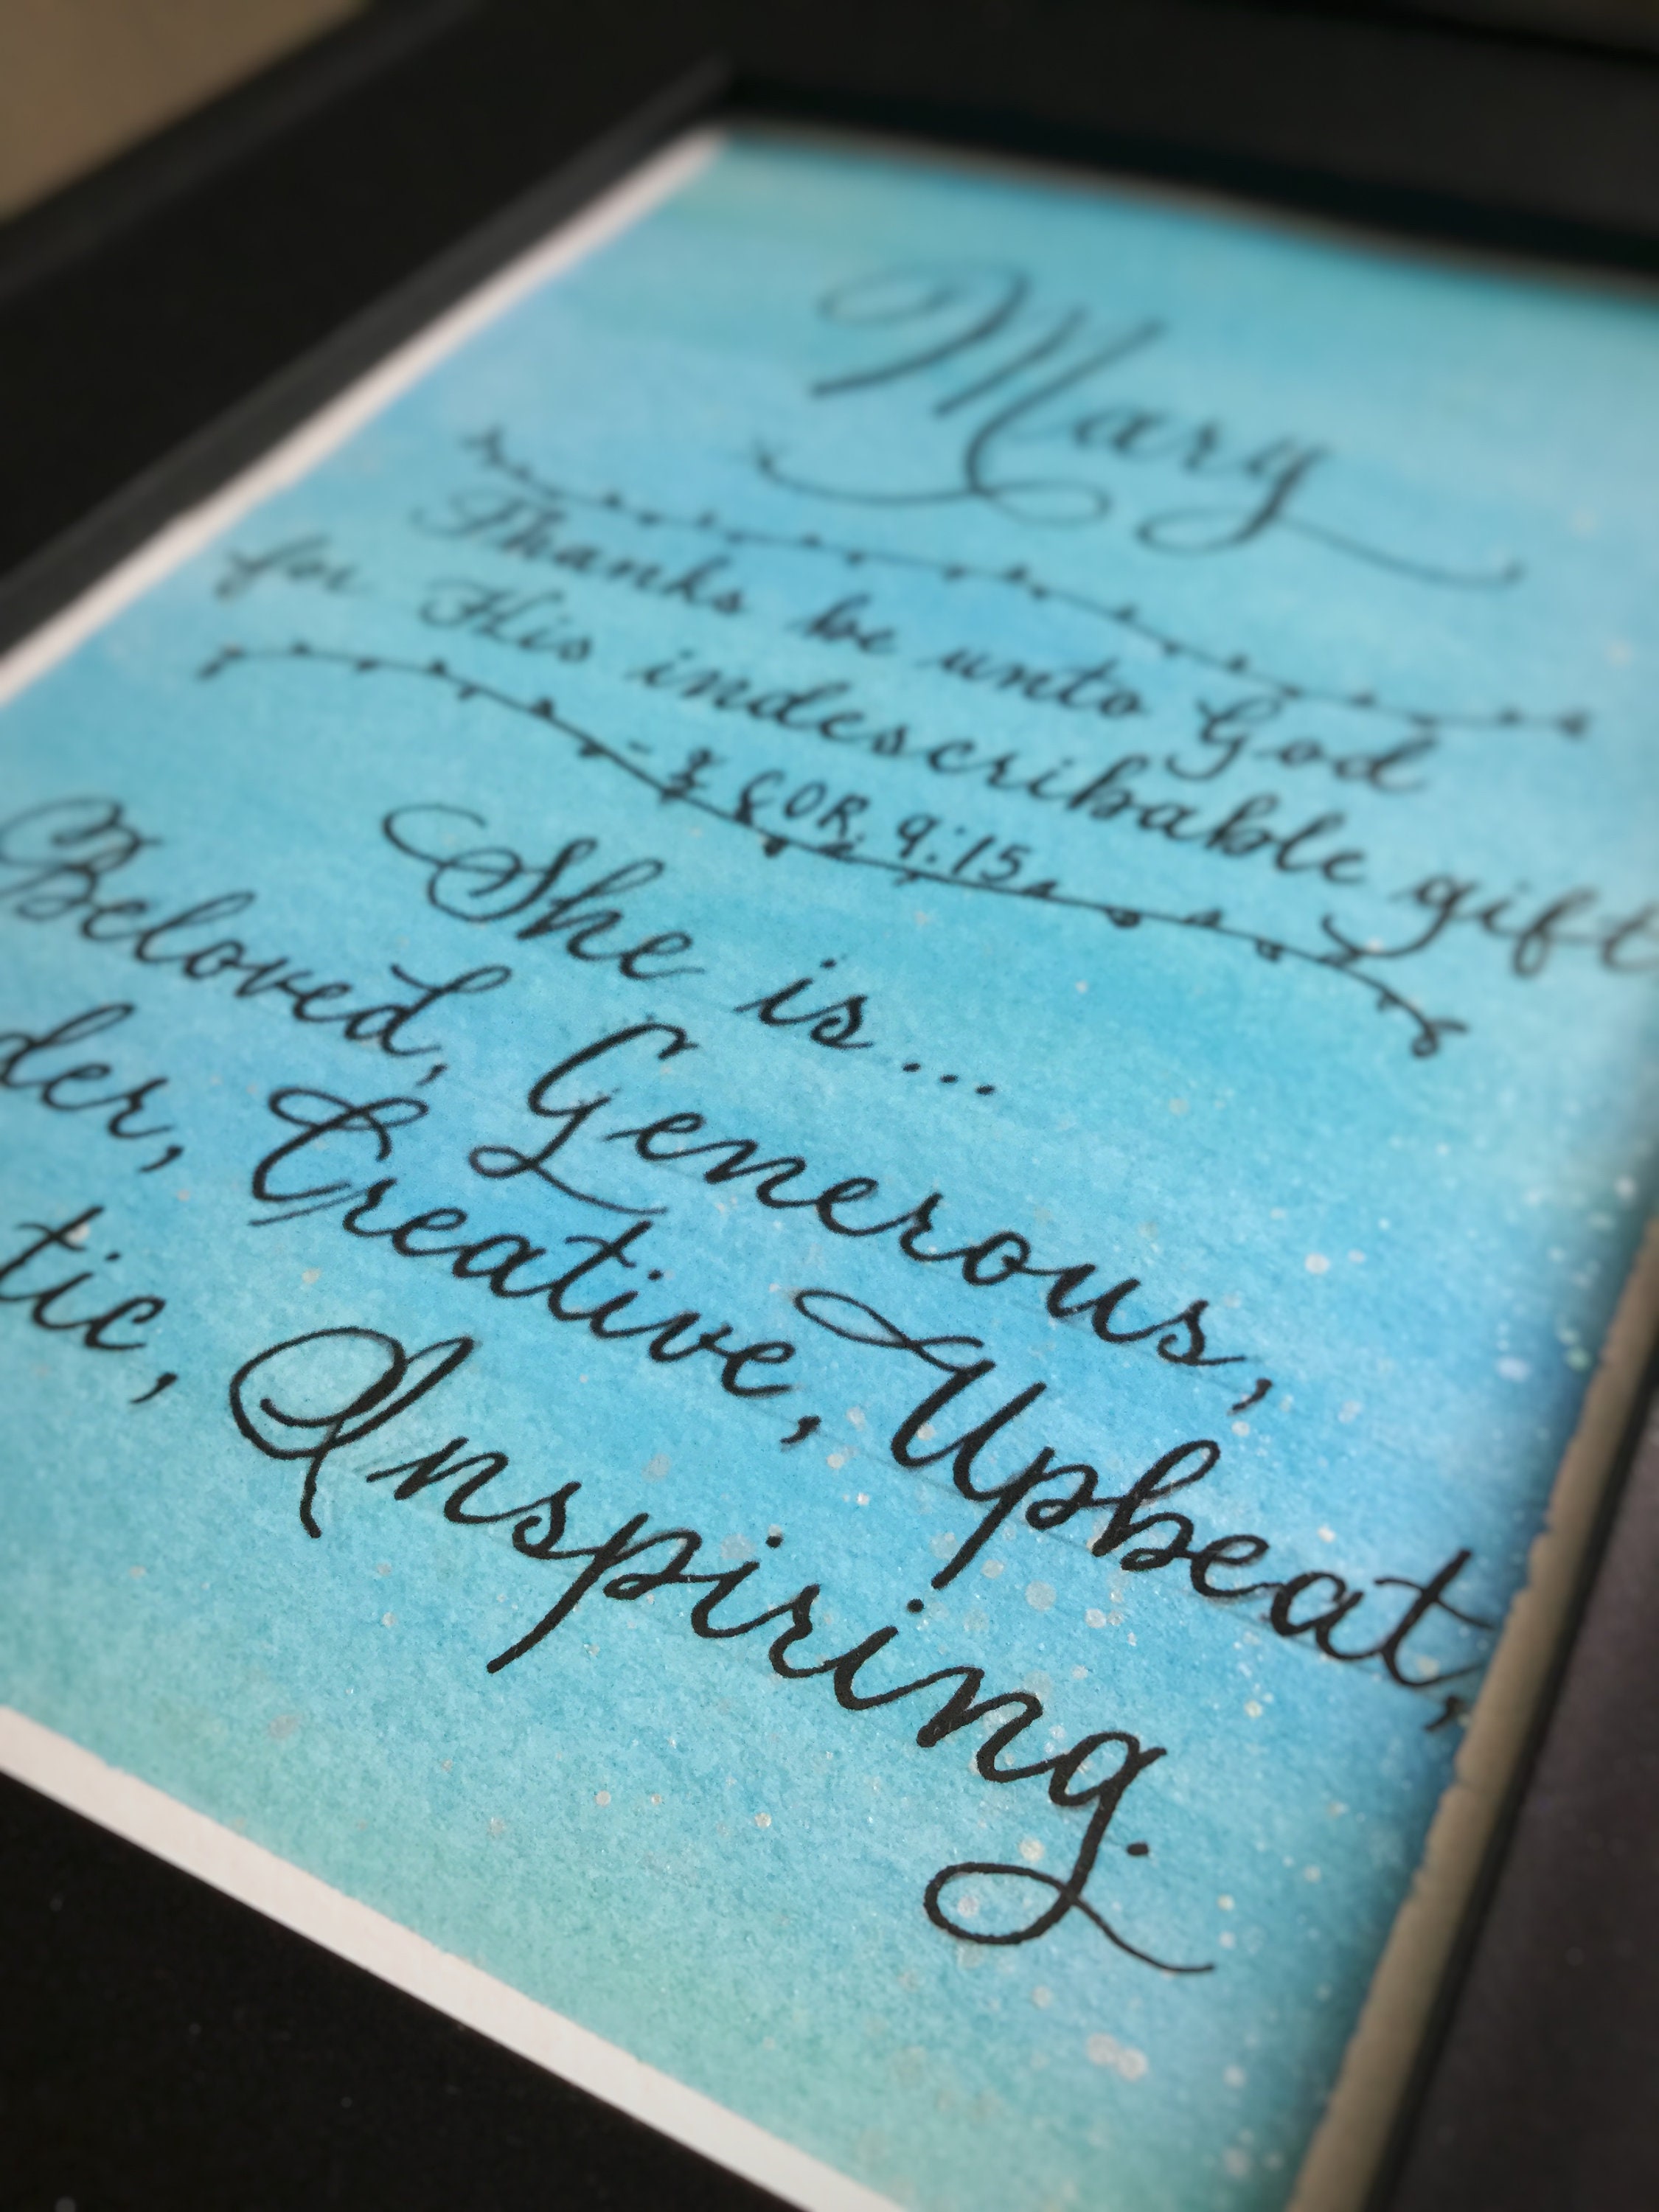 Mary
Thanks be unto God
for His indescribable gift
- 2 COR. 9:15 -
She is...
Beloved, Generous,
der, Creative, Upbeat,
tic, Inspiring.